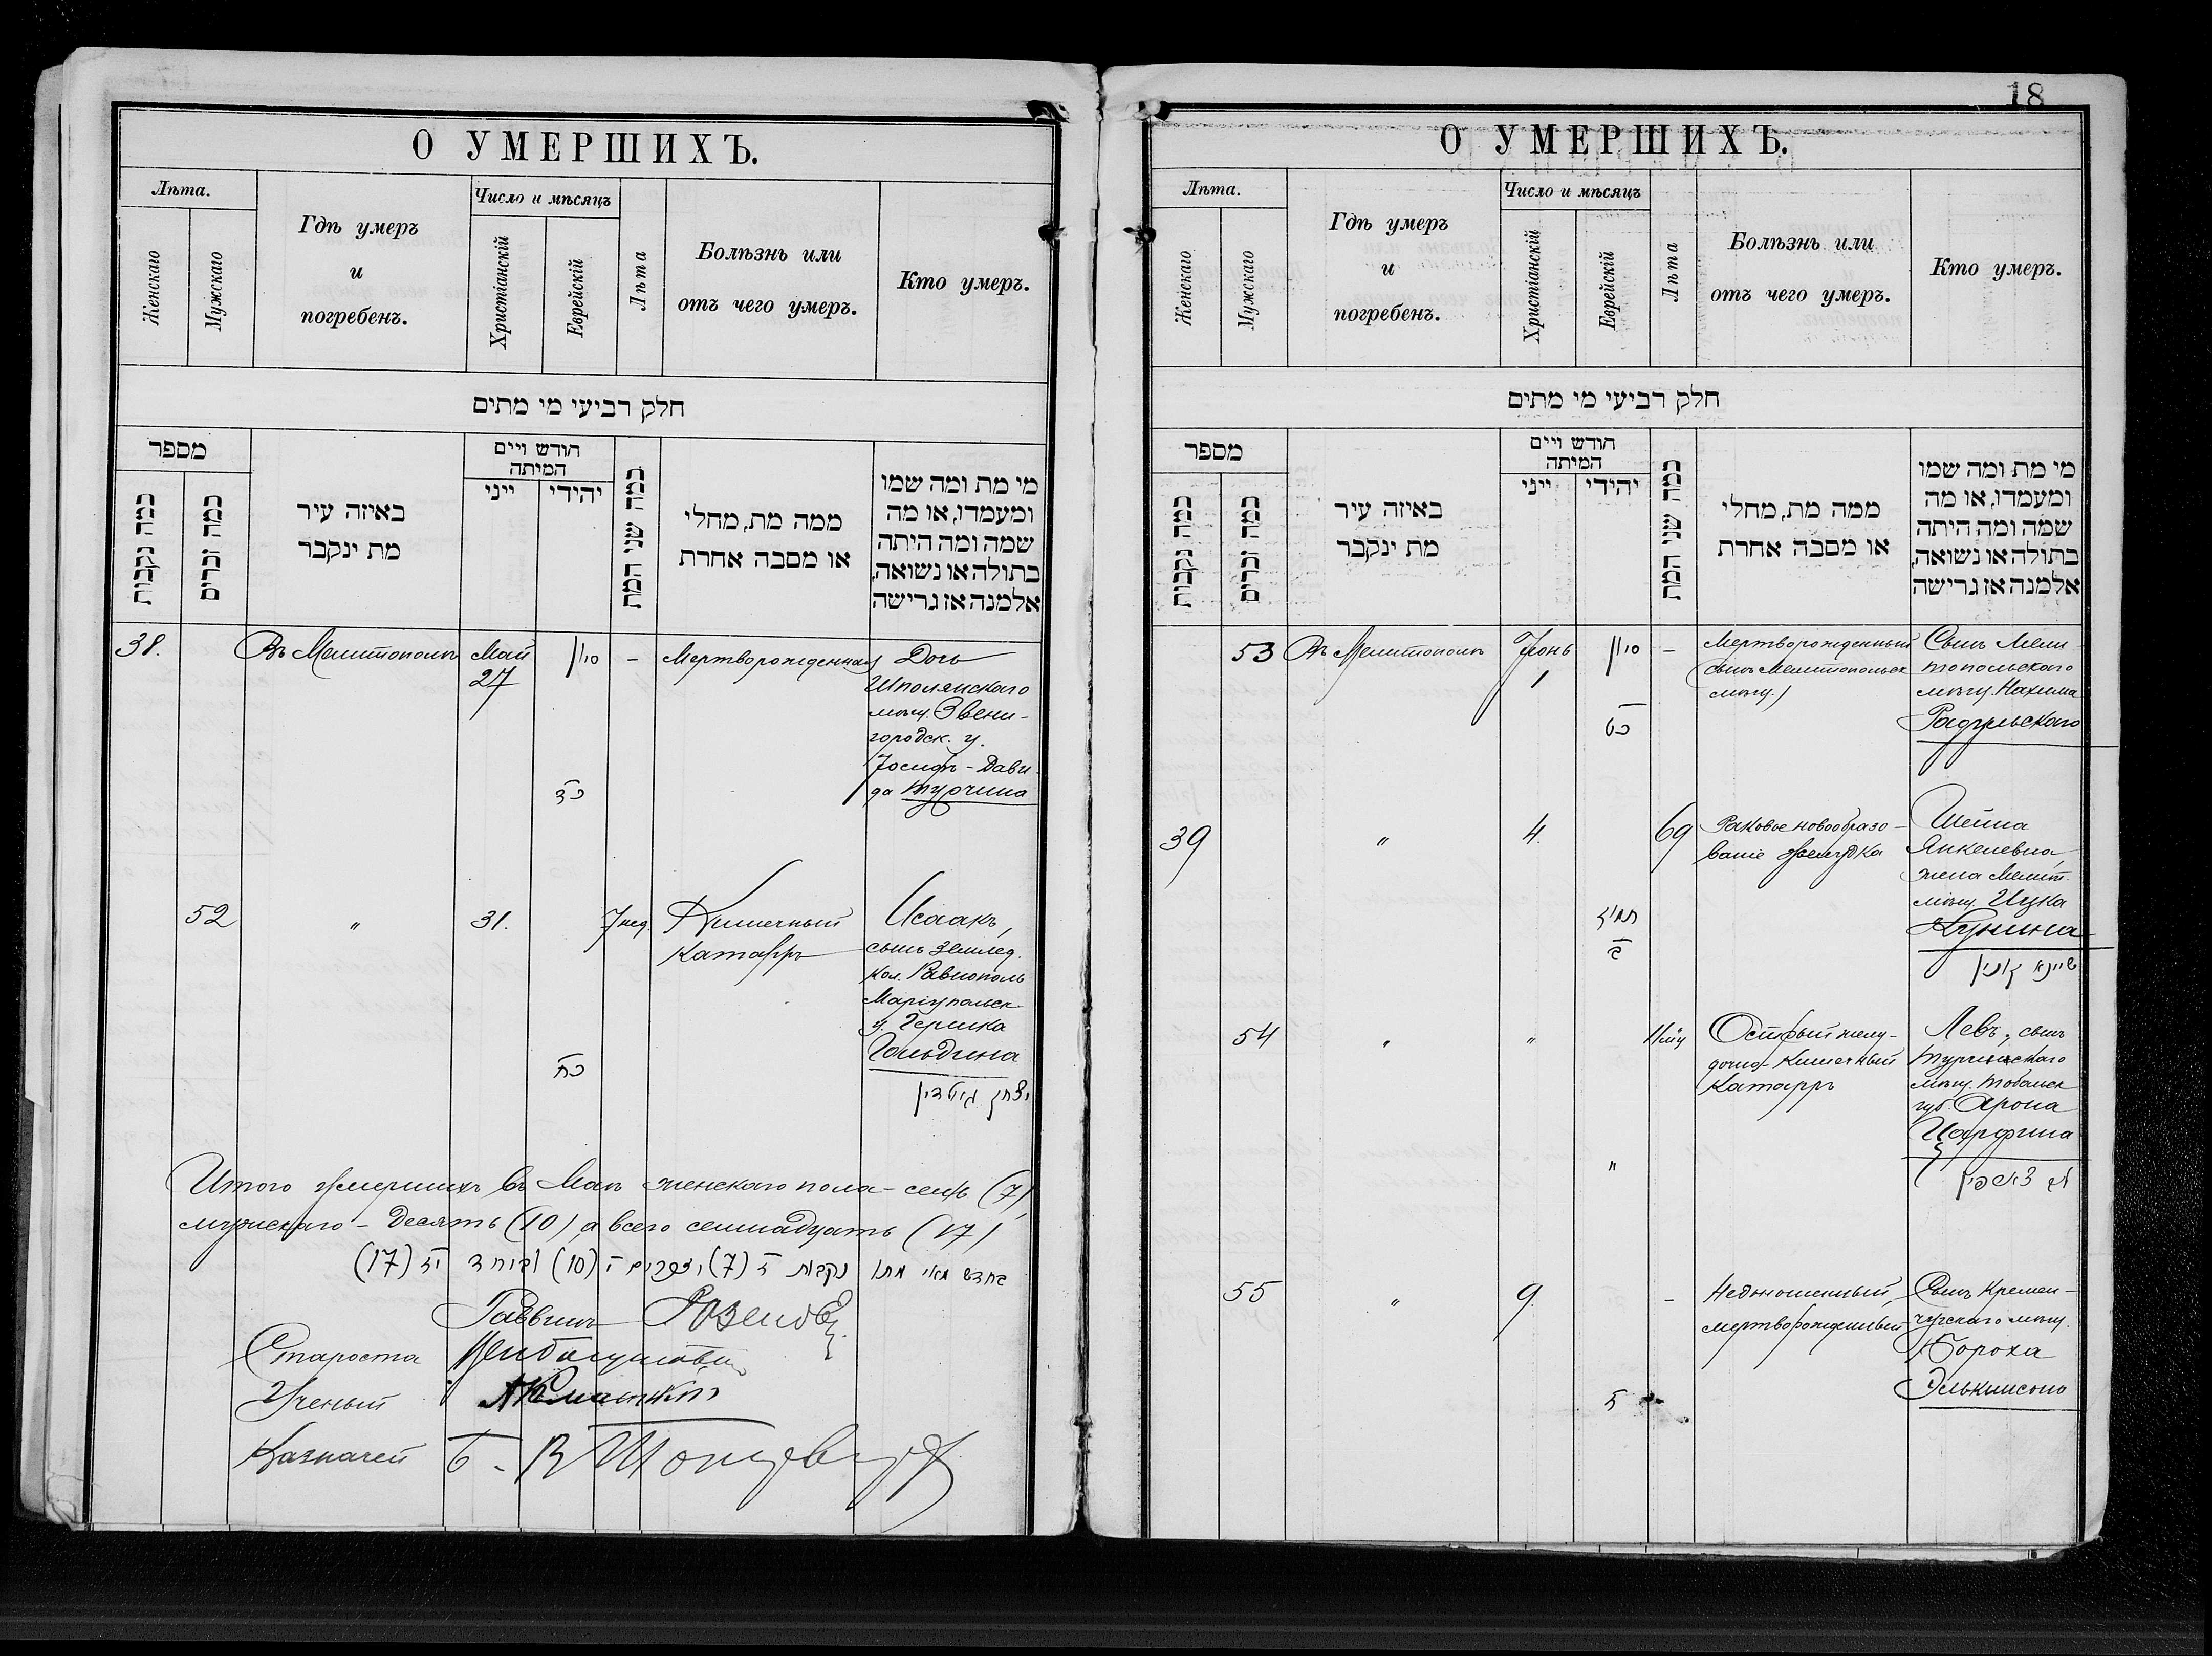 О УМЕРШИХЪ.
Лѣта.
Женскаго
Мужскаго
Гдѣ умеръ
и
погребенъ.
Число и мѣсяцъ
Христіанскій
Еврейскій
Лѣта
Болѣзнь или
отъ чего умеръ.
Кто умеръ.
חלק רביעי מי מתים
מספר
כמה נקבות
כמה זכרים
באיזה עיר
מת ינקבר
חודש ויים
המיתה
ייני
יהידי
כמה שני המת
ממה מת, מחלי
או מסבה אחרת
מי מת ומה שמו
ומעמדו, או מה
שמה ומה היתה
בתולה או נשואה,
אלמנה אז גרישה
38.
Въ Мелитополѣ
Май
27
סיון
כד
-
Мертворожденная
Дочь
Шполянскаго
мѣщ. Звени-
городск. у.
Іосифъ-Дави-
да Турчина
52
"
31.
כח
7 нед.
Кишечный
Катарръ
Исаакъ,
сынъ землед.
Кол. Равнополь
Маріупольск.
у. Гершка
Гольдина
יצחק גאלדין
Итого умершихъ въ Маѣ женскаго пола - семь (7),
мужскаго - десять (10), а всего семнадцать (17)
בחדש מאי מתו נקבות ז (7) וזכרים י (10) וביחד יז (17)
Раввинъ
Староста
Ученый
Казначей
18
О УМЕРШИХЪ.
Лѣта.
Женскаго
Мужскаго
Гдѣ умеръ
и
погребенъ.
Число и мѣсяцъ
Христіанскій
Еврейскій
Лѣта
Болѣзнь или
отъ чего умеръ.
Кто умеръ.
חלק רביעי מי מתים
מספר
כמה נקבות
כמה זכרים
באיזה עיר
מת ינקבר
חודש ויים
המיתה
ייני
יהידי
כמה שני המת
ממה מת, מחלי
או מסבה אחרת
מי מת ומה שמו
ומעמדו, או מה
שמה ומה היתה
בתולה או נשואה,
אלמנה אז גרישה
53
Въ Мелитополѣ
Іюнь
1
סיון
כט
-
Мертворожденный
(сынъ Мелитопольск
мѣщ.)
Сынъ Мели-
топольскаго
мѣщ. Нахима
39
"
4.
תמוז
ב
69
Раковое новообразо-
ваніе желудка
Шейна
Янкелевна,
жена Мелит.
мѣщ. Ицка
Кунина
שיינא קונין
54
"
"
"
Острый желу-
дочно-кишечный
Катарръ
Левъ, сынъ
мѣщ. Тобольск
губ. Арона
Царфина
לב צארפין
55
"
9.
ז
-
Недоношенный,
мертворожденный
Сынъ Кремен-
чугскаго мѣщ.
Бороха
Элькинсона